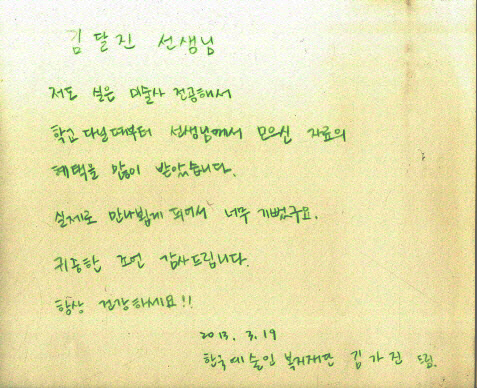 김달진 선생님
저도 실은 미술사 전공해서
학교 다닐때부터 선생님께서 모으신 자료의
혜택을 많이 받았습니다.
실제로 만나뵙게 되어서 너무 기뻤구요.
귀중한 조언 감사드립니다.
항상 건강하세요!!
2013. 3. 19
한국예술인복지재단 김가진 드림.